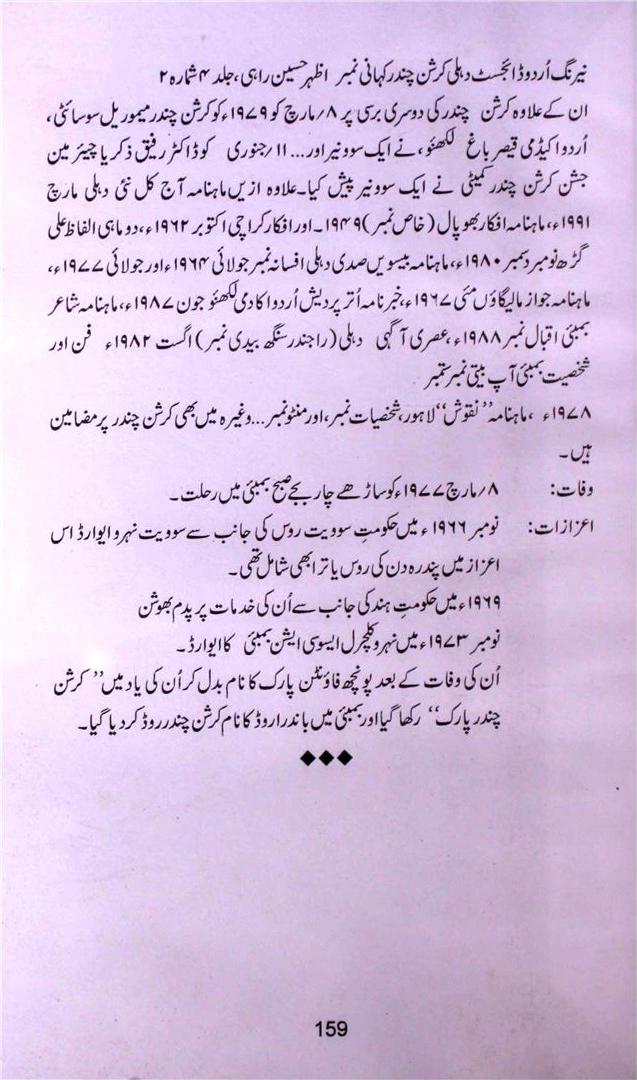 نیرنگ اُردو ڈائجسٹ دہلی کرشن چندر کہانی نمبر اظہر حسین راہی، جلد ۴ شمارہ ۲
ان کے علاوہ کرشن چندر کی دوسری برسی پر ۸؍مارچ کو ۱۹۷۹ء کو کرشن چندر میموریل سوسائٹی،
اُردو اکیڈمی قیصر باغ لکھنؤ، نے ایک سوونیر اور... ۱۱؍جنوری کو ڈاکٹر رفیق ذکریا چیئر مین
جشن کرشن چندر کمیٹی نے ایک سوونیر پیش کیا۔ علاوہ ازیں ماہنامہ آج کل نئی دہلی مارچ
۱۹۹۱ء، ماہنامہ افکار بھوپال (خاص نمبر) ۱۹۴۹۔ اور افکار کراچی اکتوبر ۱۹۶۲ء، دو ماہی الفاظ علی
گڑھ نومبر دسمبر ۱۹۸۰ء، ماہنامہ بیسویں صدی دہلی افسانہ نمبر جولائی ۱۹۶۴ء اور جولائی ۱۹۷۷ء،
ماہنامہ جواز مالیگاؤں مئی ۱۹۶۷ء، خبر نامہ اُتر پردیش اُردو اکادمی لکھنؤ جون ۱۹۸۷ء، ماہنامہ شاعر
بمبئی اقبال نمبر ۱۹۸۸ء، عصری آگہی دہلی (راجندر سنگھ بیدی نمبر) اگست ۱۹۸۲ء فن اور
شخصیت بمبئی آپ بیتی نمبر ستمبر
۱۹۷۸ء، ماہنامہ ’’نقوش‘‘ لاہور، شخصیات نمبر، اور منٹو نمبر... وغیرہ میں بھی کرشن چندر پر مضامین
ہیں۔
وفات: ۸؍مارچ ۱۹۷۷ء کو ساڑھے چار بجے صبح بمبئی میں رحلت۔
اعزازات: نومبر ۱۹۶۶ء میں حکومتِ سوویت روس کی جانب سے سوویت نہرو ایوارڈ اس
اعزاز میں پندرہ دن کی روس یاترا بھی شامل تھی۔
۱۹۶۹ء میں حکومتِ ہند کی جانب سے اُن کی خدمات پر پدم بھوشن
نومبر ۱۹۷۳ء میں نہرو کلچرل ایسوسی ایشن بمبئی کا ایوارڈ۔
اُن کی وفات کے بعد پونچھ فاؤنٹن پارک کا نام بدل کر اُن کی یاد میں ’’کرشن
چندر پارک‘‘ رکھا گیا اور بمبئی میں باندرا روڈ کا نام کرشن چندر روڈ کر دیا گیا۔
159